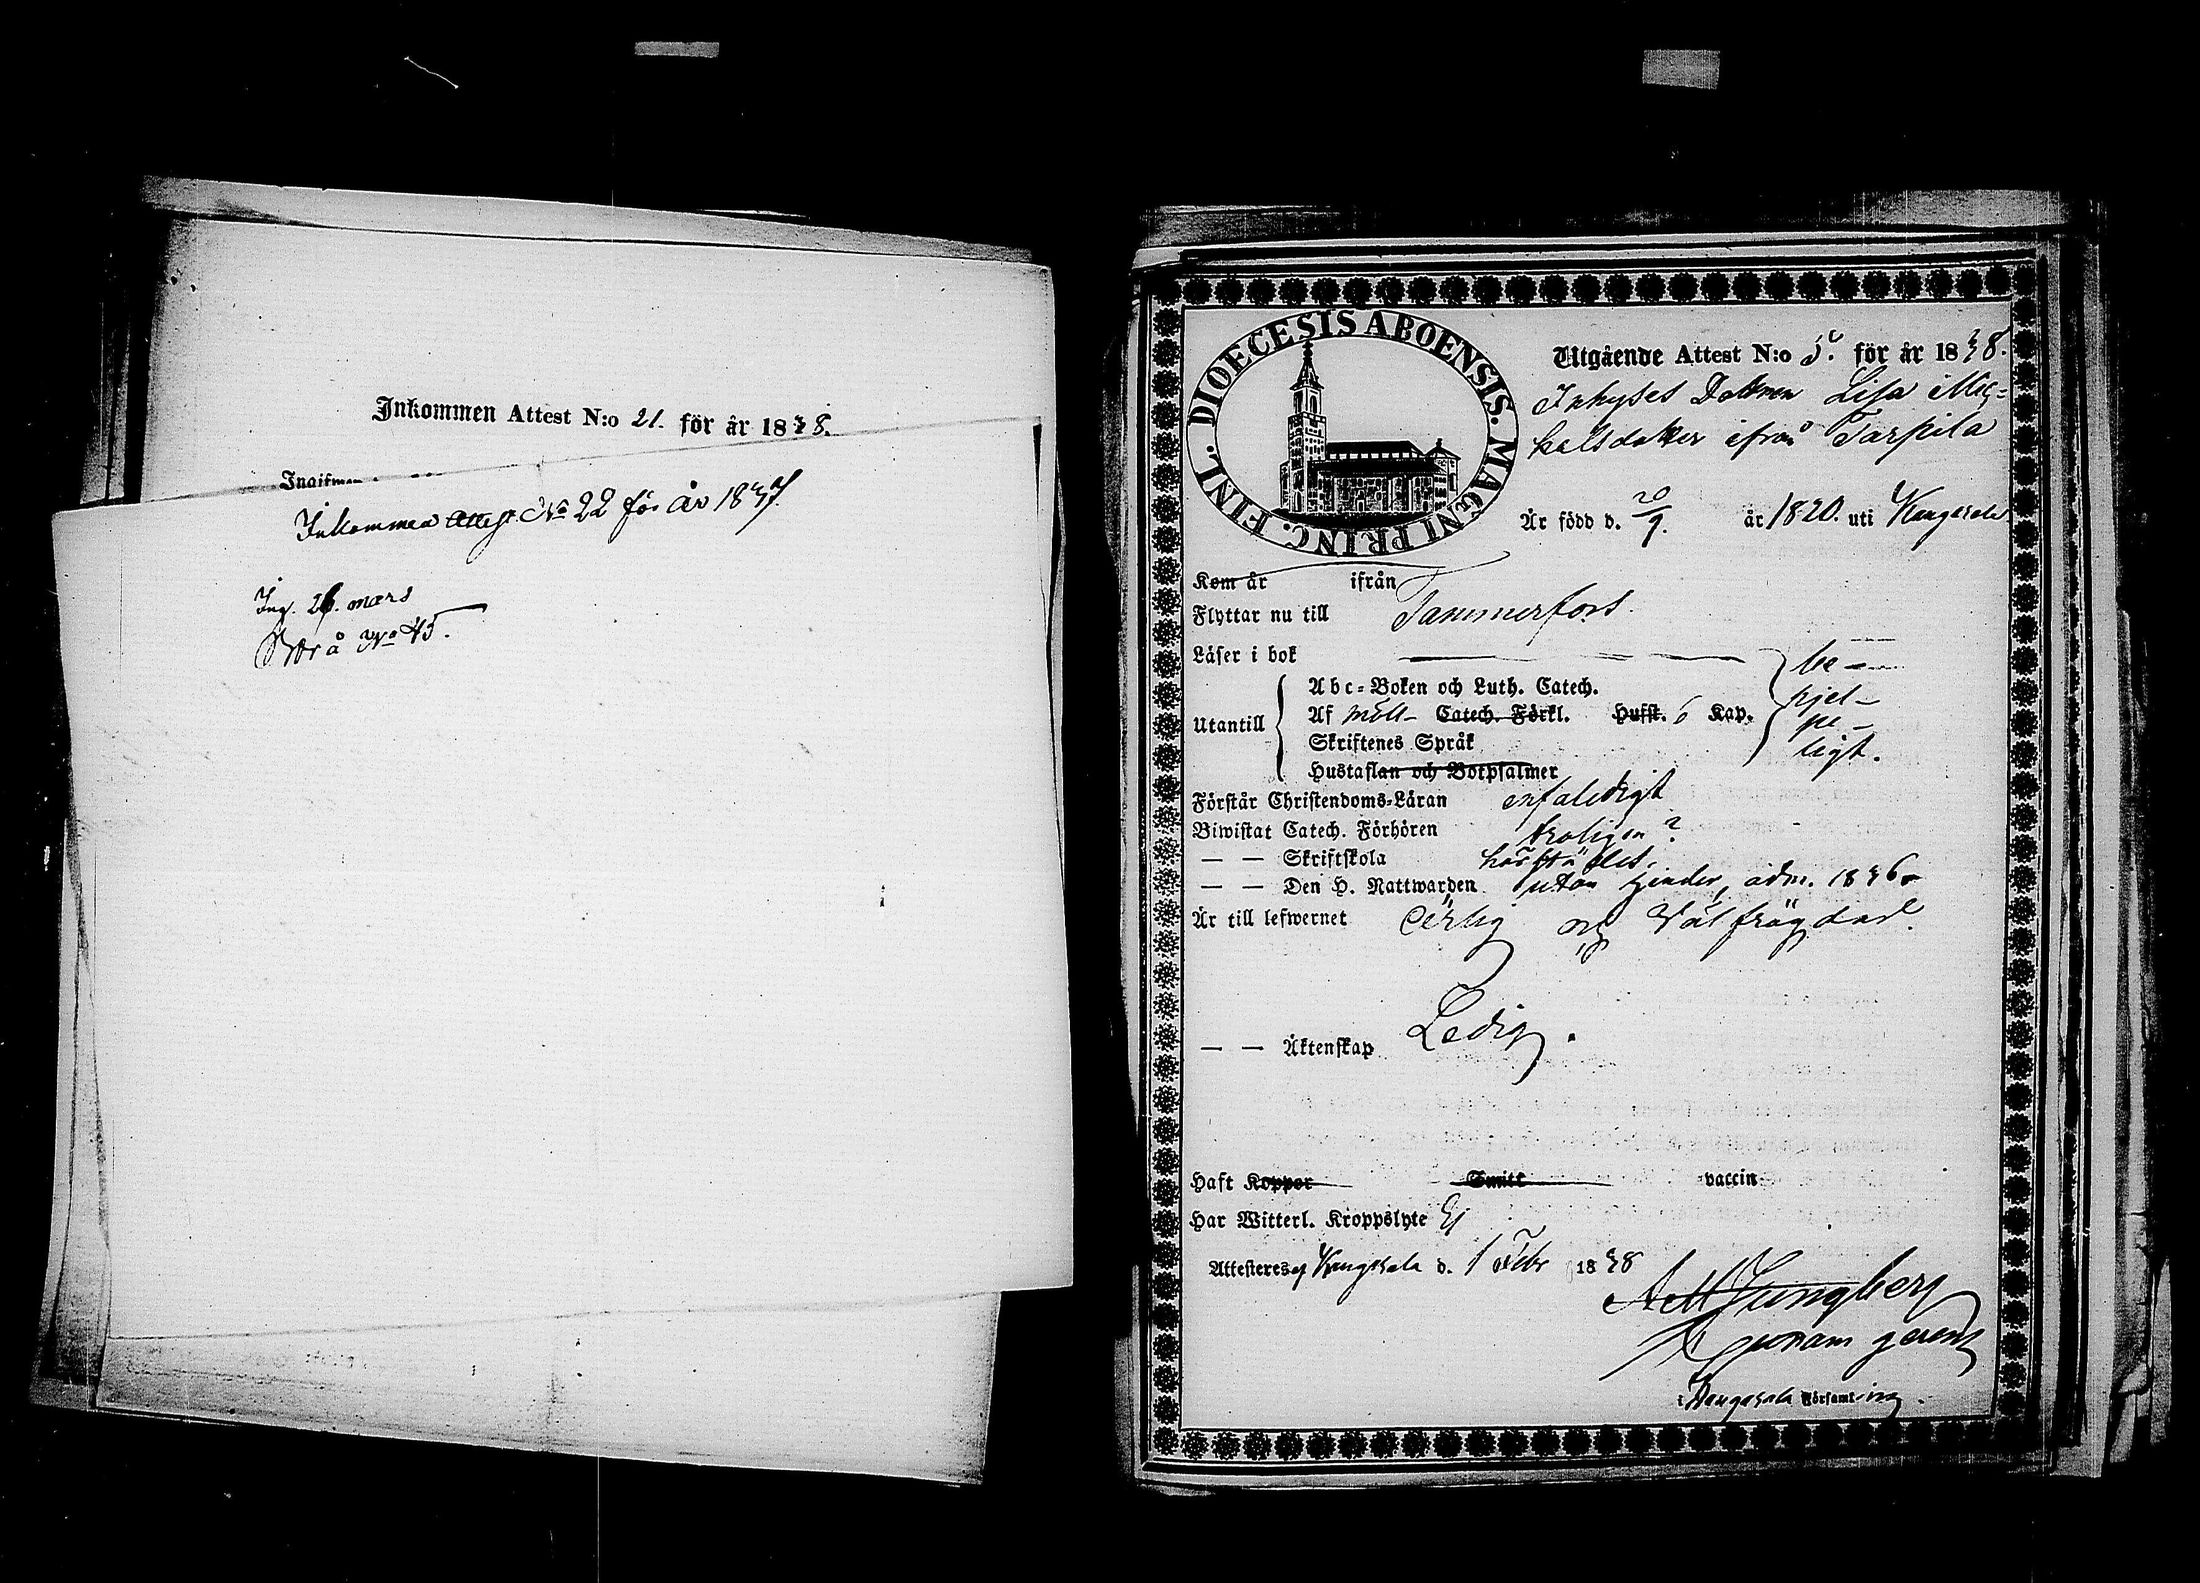 Inkommen Attest N:o 21. för år 1848.
Inkommen Attest No 22 för år 1847.
Ing. 26. mars
No 45.
DIOECESIS ABOENSIS. MAGNI PRINC. FINL.
Utgående Attest N:o 5. för år 1848.
Inhyses Dottren Lisa Mic=
kelsdotter ifrån Tarpila
Är född d. 20/9. år 1820. uti Kangasala
Kom år ifrån
Flyttar nu till Tammerfors.
Läser i bok be-
Utantill
Abc-Boken och Luth. Catech. hjel-
Af Möll- Catech. Förkl. Hufst. 6 Kap. pe-
Skriftenes Språk ligt.
Hustaflan och Botpsalmer
Förstår Christendoms-Läran enfaldigt
Biwistat Catech. Förhören troligen?
— — Skriftskola härstädes.
— — Den H. Nattwarden utan hinder, adm. 1846
Är till lefwernet ärlig och Välfrägdad.
— — Äktenskap Ledig.
Haft Koppor Smitt vaccin
Har Witterl. Kroppslyte Ej
Attesteres af Kangasala d. 1 Febr 1848
Ljungberg
i Kangasala Församling.